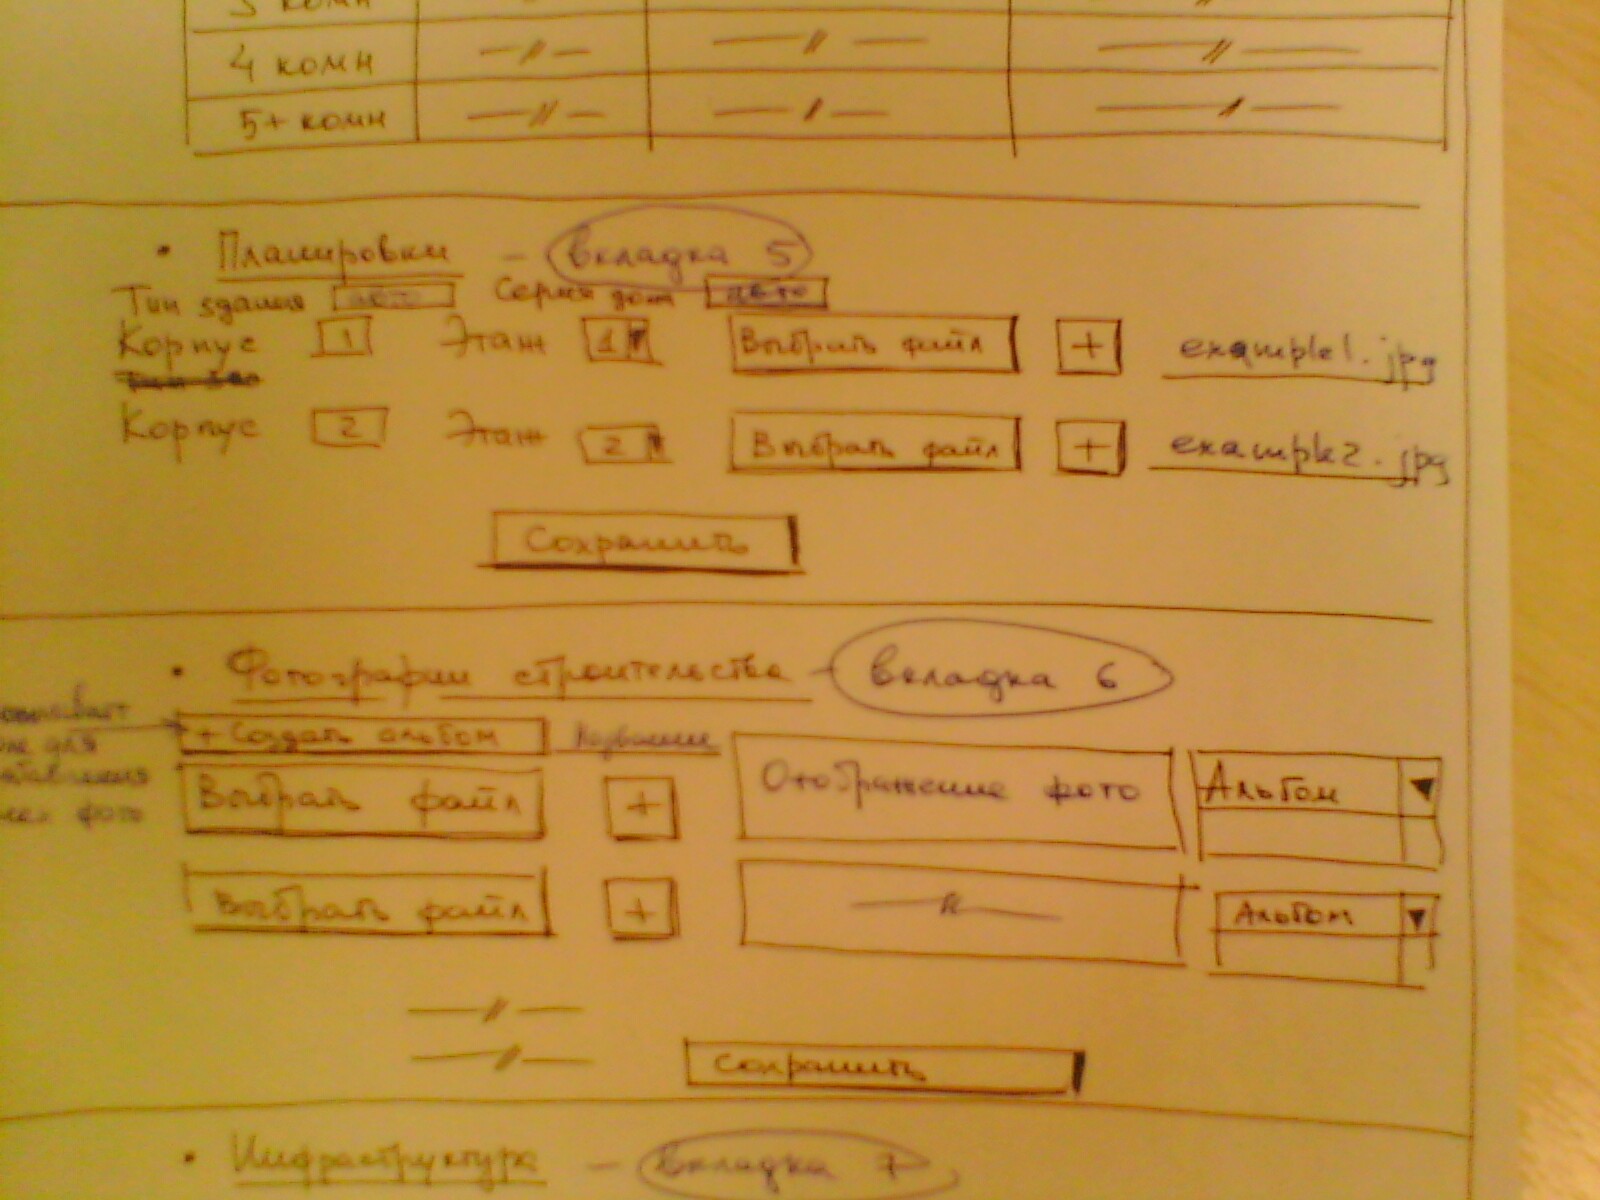 3 комн
4 комн —//— —//— —//—
5+ комн —//— —//— —//—
• Планировки — вкладка 5
Тип здания авто Серия дома авто
Корпус 1 Этаж 1 Выбрать файл + example1.jpg
Корпус 2 Этаж 2 Выбрать файл + example2.jpg
Сохранить
• Фотографии строительства — вкладка 6
+ Создать альбом Название
для
фото
Выбрать файл + Отображение фото Альбом ▼
Выбрать файл + —//— Альбом ▼
—//—
—//— Сохранить
• Инфраструктура — вкладка 7